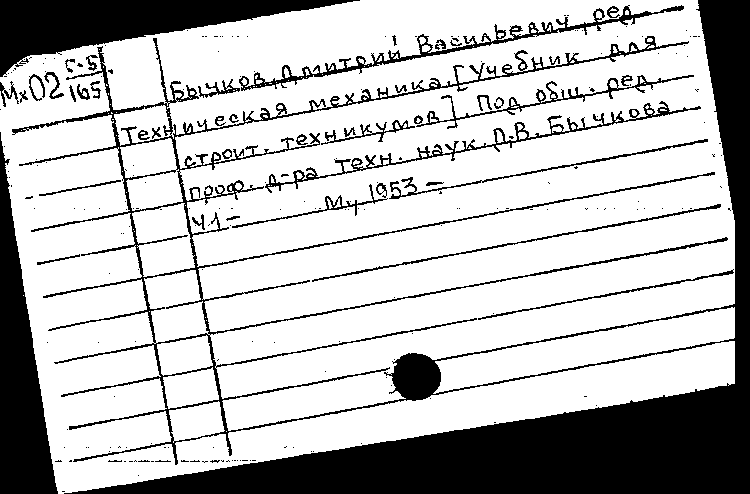 Мх02 5-5/165
Бычков, Дмитрий Васильевич, ред.
Техническая механика. [Учебник для
строит. техникумов]. Под общ. ред.
проф. д-ра техн. наук. Д.В. Бычкова.
Ч1- М., 1953 -